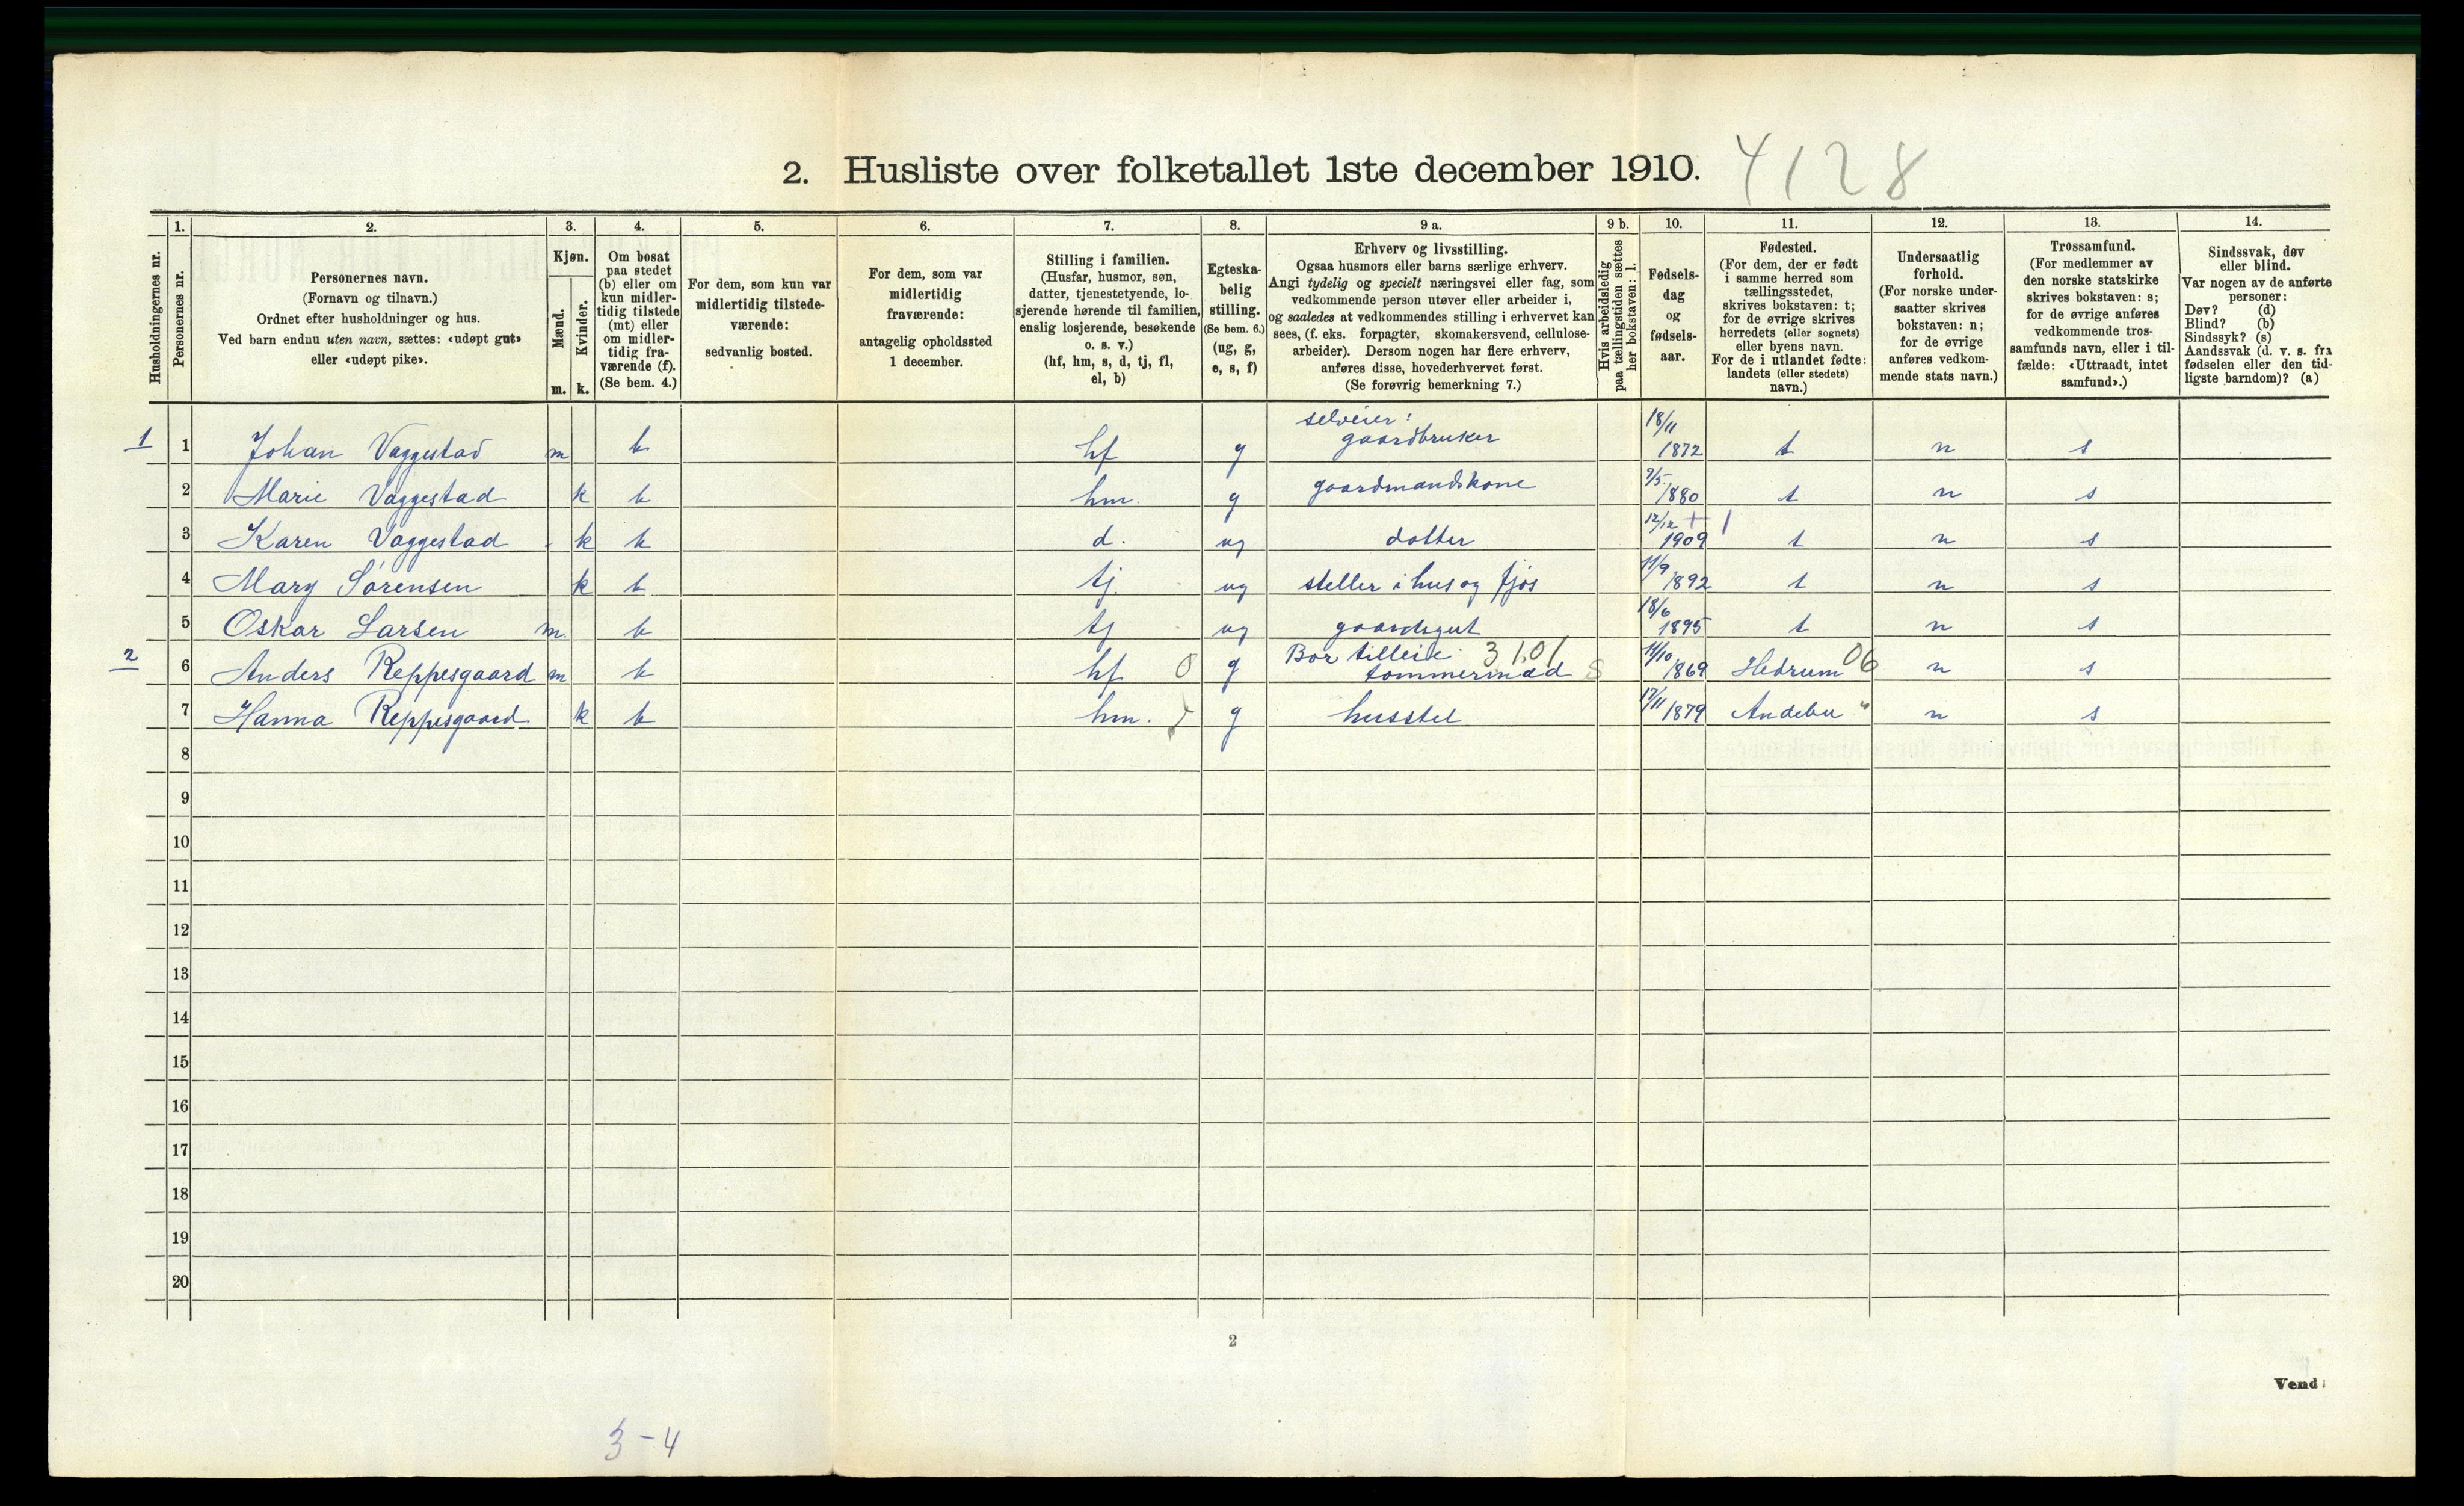 2. Husliste over folketallet 1ste december 1910. 4128
1. 2. 3. 4. 5. 6. 7. 8. 9 a. 9 b. 10. 11. 12. 13. 14.
Husholdningernes nr.
Personernes nr.
Personernes navn.
(Fornavn og tilnavn.)
Ordnet efter husholdninger og hus.
Ved barn endnu uten navn, sættes: «udøpt gut»
eller «udøpt pike».
Kjøn.
Mænd.
Kvinder.
m. k.
Om bosat
paa stedet
(b) eller om
kun midler-
tidig tilstede
(mt) eller
om midler-
tidig fra-
værende (f).
(Se bem. 4.)
For dem, som kun var
midlertidig tilstede-
værende:
sedvanlig bosted.
For dem, som var
midlertidig
fraværende:
antagelig opholdssted
1 december.
Stilling i familien.
(Husfar, husmor, søn,
datter, tjenestetyende, lo-
sjerende hørende til familien,
enslig losjerende, besøkende
o. s. v.)
(hf, hm, s, d, tj, fl,
el, b)
Egteska-
belig
stilling.
(Se bem. 6.)
(ug, g,
e, s, f)
Erhverv og livsstilling.
Ogsaa husmors eller barns særlige erhverv.
Angi tydelig og specielt næringsvei eller fag, som
vedkommende person utøver eller arbeider i,
og saaledes at vedkommendes stilling i erhvervet kan
sees, (f. eks. forpagter, skomakersvend, cellulose-
arbeider). Dersom nogen har flere erhverv,
anføres disse, hovederhvervet først.
(Se forøvrig bemerkning 7.)
Hvis arbeidsledig
paa tællingstiden sættes
her bokstaven: l.
Fødsels-
dag
og
fødsels-
aar.
Fødested.
(For dem, der er født
i samme herred som
tællingsstedet,
skrives bokstaven: t;
for de øvrige skrives
herredets (eller sognets)
eller byens navn.
For de i utlandet fødte:
landets (eller stedets)
navn.)
Undersaatlig
forhold.
(For norske under-
saatter skrives
bokstaven: n;
for de øvrige
anføres vedkom-
mende stats navn.)
Trossamfund.
(For medlemmer av
den norske statskirke
skrives bokstaven: s;
for de øvrige anføres
vedkommende tros-
samfunds navn, eller i til-
fælde: «Uttraadt, intet
samfund».)
Sindssvak, døv
eller blind.
Var nogen av de anførte
personer:
Døv? (d)
Blind? (b)
Sindssyk? (s)
Aandssvak (d. v. s. fra
fødselen eller den tid-
ligste barndom)? (a)
1 1 Johan Vaggestad m b hf g selveier: gaardbruker 18/11 1872 t n s
2 Marie Vaggestad k b hm. g gaardmandskone 7/5 1880 t n s
3 Karen Vaggestad k b d. ug datter 12/12 + 1 1909 t n s
4 Mary Sørensen k b tj. ug steller i hus og fjøs 11/9 1892 t n s
5 Oskar Larsen m b tj ug gaardsgut 18/6 1895 t n s
2 6 Anders Reppesgaard m b hf 0 g Bor tilleie. 3 1.01 tømmermad S 11/10 1869 Hedrum 06 n s
7 Hanna Reppesgaard k b hm. g husstel 17/11 1879 Andebu " n s
8
9
10
11
12
13
14
15
16
17
18
19
20
2
Vend!
3-4